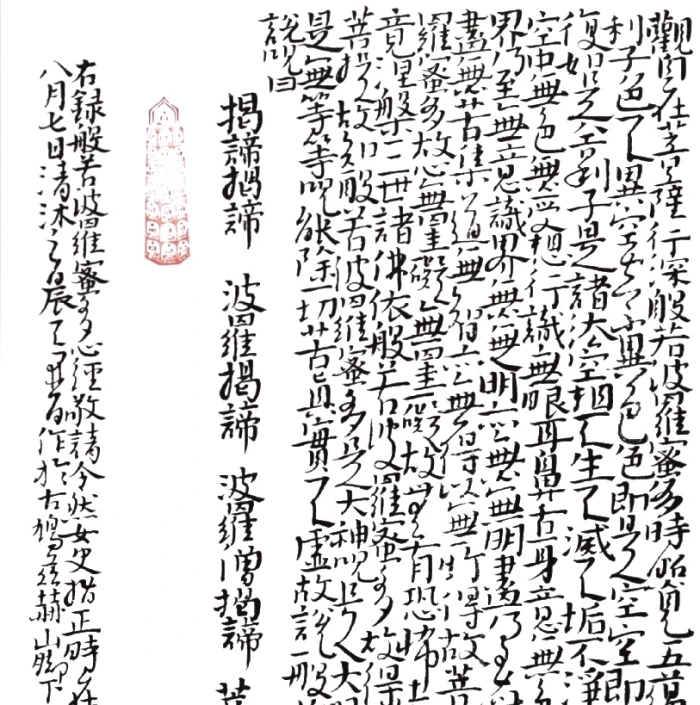 觀自在菩薩行深般若波羅蜜多時照見五蘊
利子色不異空空不異色色即是空空即
復如是舍利子是諸法空相不生不滅不垢不淨
空中無色無受想行識無眼耳鼻舌身意無色
界乃至無意識界無無明亦無無明盡乃至
盡無苦集滅道無智亦無得以無所得故菩
羅蜜多故心無罣礙無罣礙故無有恐怖
竟涅槃三世諸佛依般若波羅蜜多故得
菩提故知般若波羅蜜多是大神咒是大明
是無等等咒能除一切苦真實不虛故說般
說咒曰
揭諦揭諦 波羅揭諦 波羅僧揭諦 菩
右錄般若波羅蜜多心經敬請今然女史指正時在
八月七日清沐之晨 作於古鳩茲赭山腳下